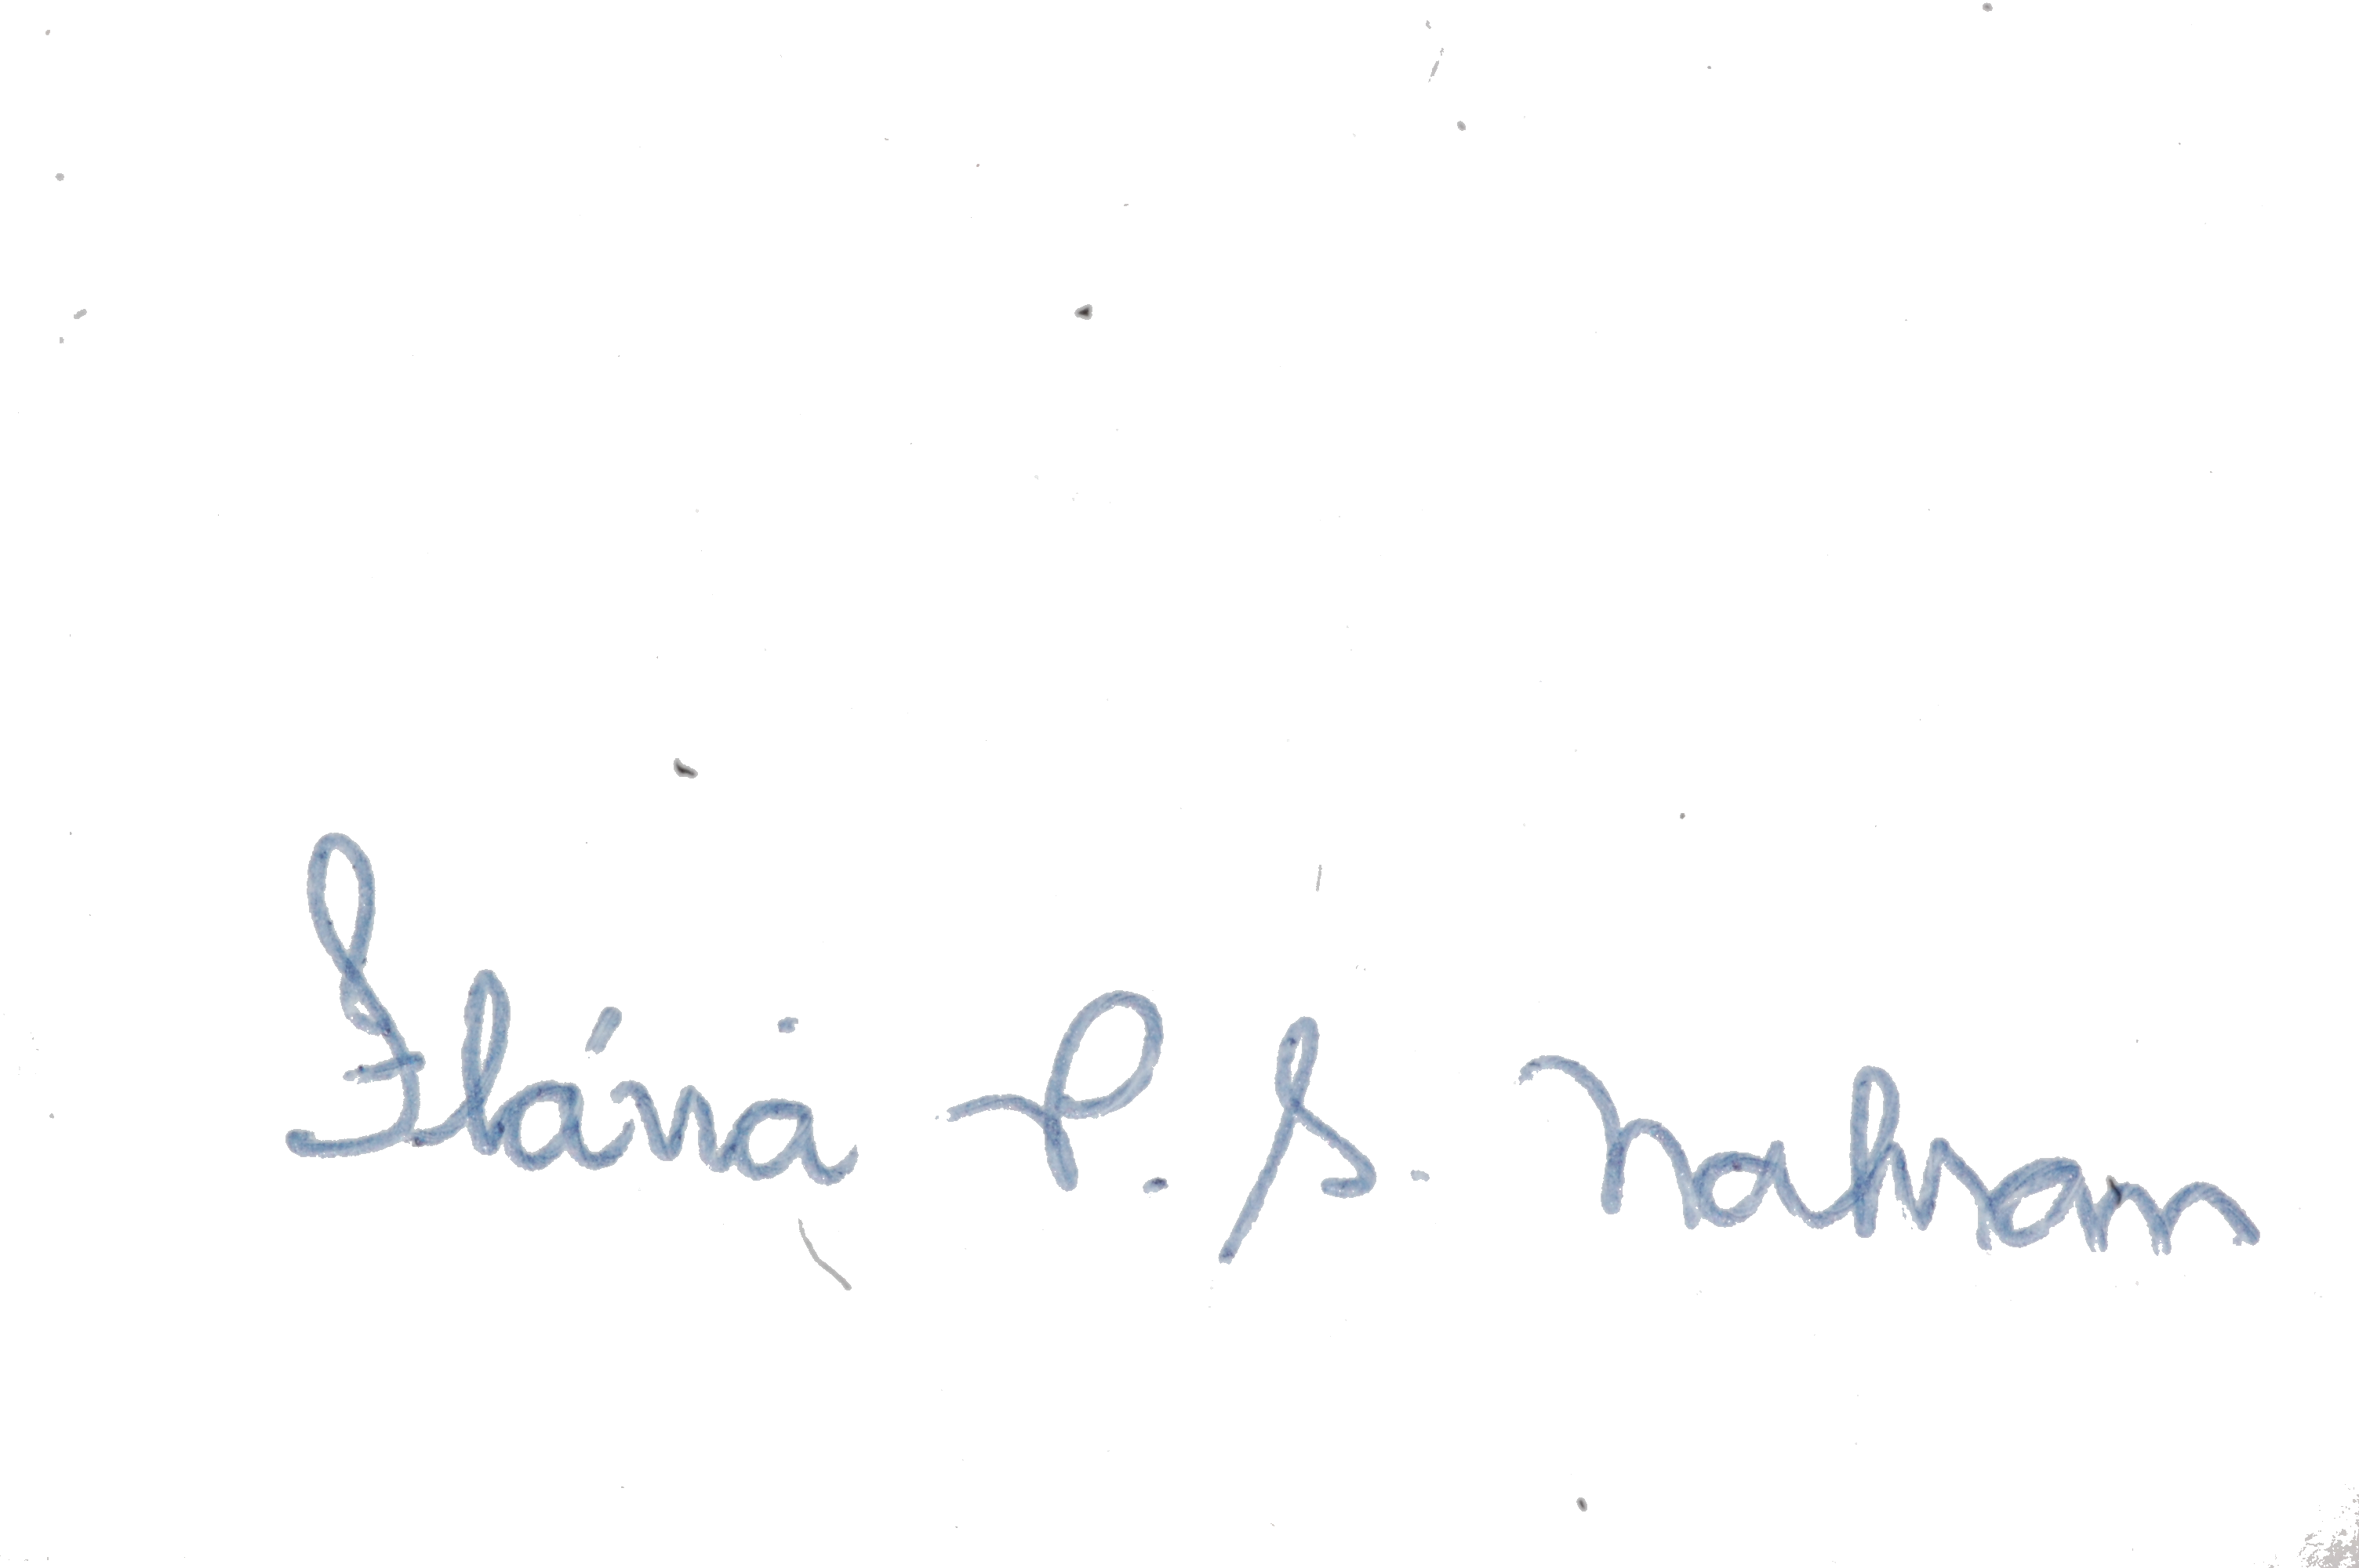 Flávia P. S. Nahsan